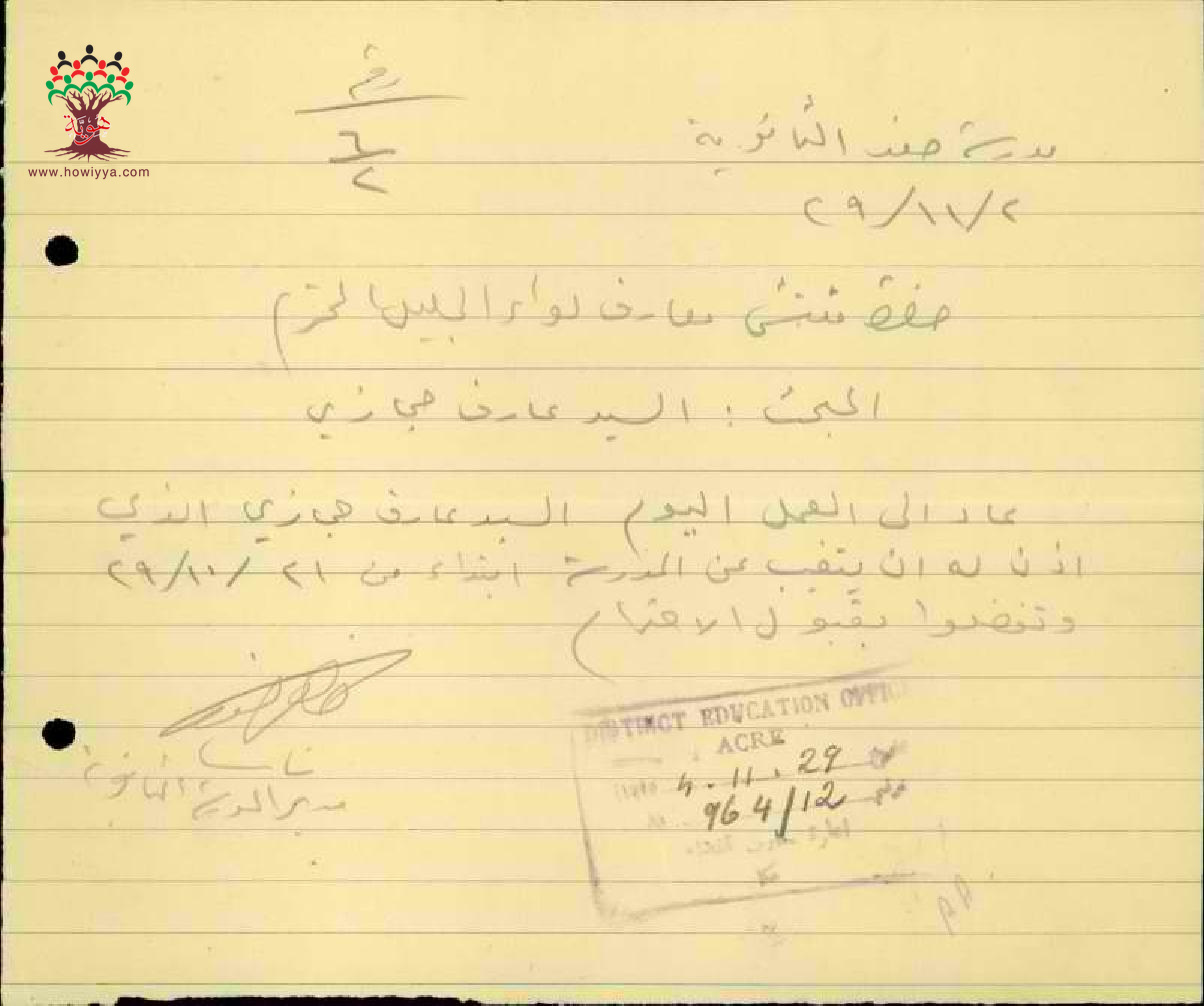 رقم
٦
٢
مدرسة صفد الثانوية
٢٩/١١/٢
حضرة مفتش معارف لواء الجليل المحترم
المبحث : السيد عارف حجازي
عاد الى العمل اليوم السيد عارف حجازي الذي
اذن له ان يتغيب عن المدرسة ابتداء من ٢١ /٢٩/١٠
وتفضلوا بقبول الاحترام
مدير المدرسة الثانوية
DISTRICT EDUCATION OFFICE
ACRE
4.11.29
964/12
هوية
www.howiyya.com